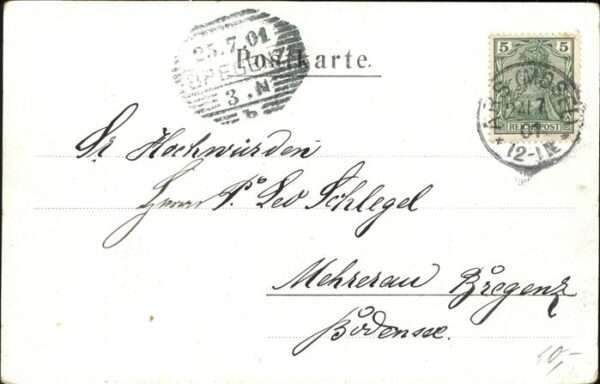 25.7.01
BREGENZ
3.N
b
Postkarte.
5
REICHSPOST
(MOSEL)
12-1N
Sr Hochwürden
Herrn P. Leo Schlegel
Mehrerau Bregenz
Bodensee.
10,-